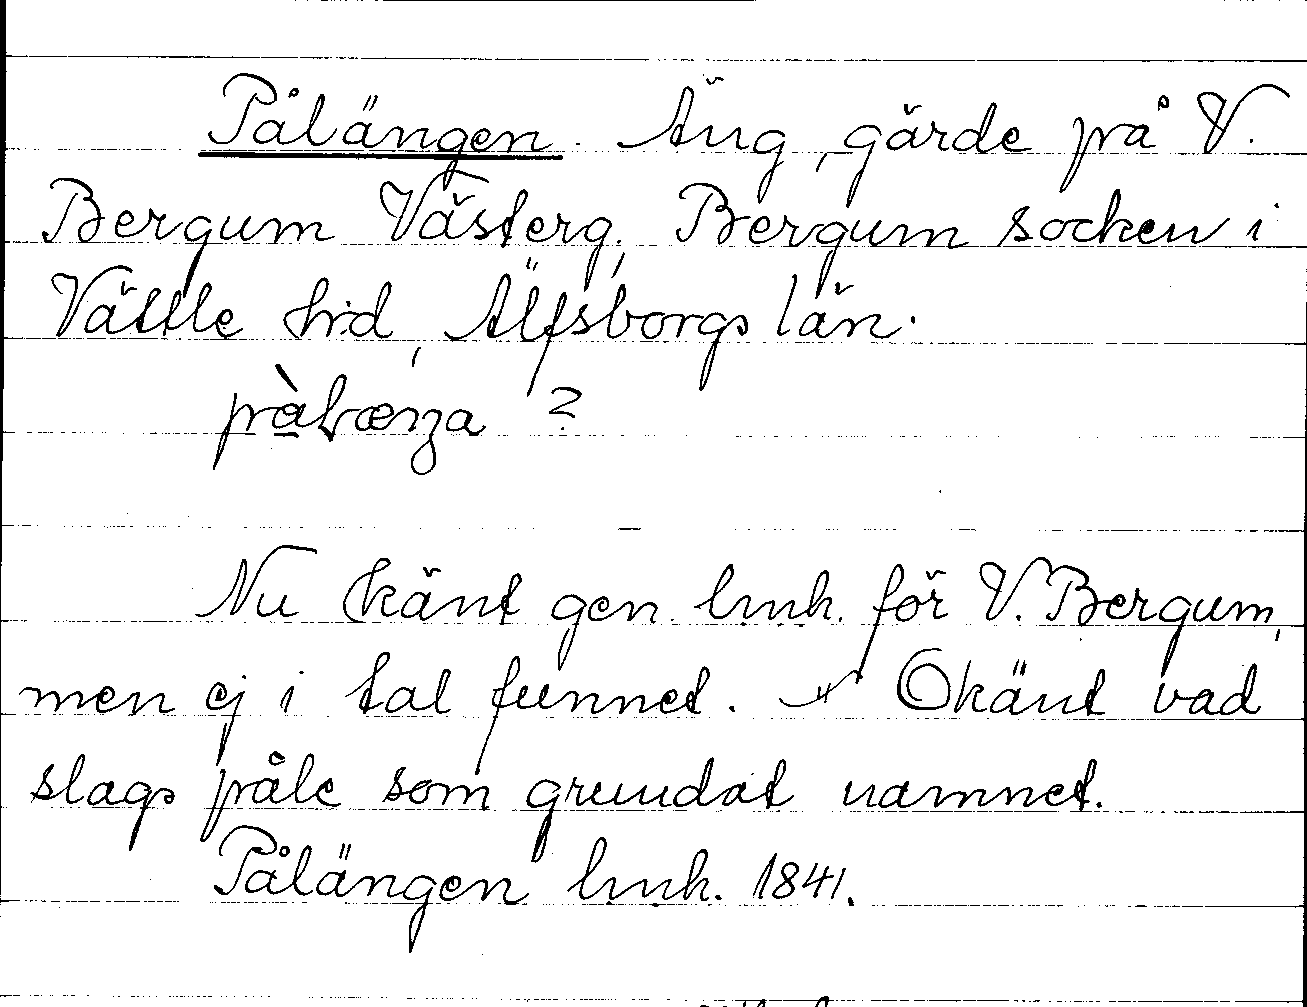 Pålängen. Äng, gärde på V.
Bergum Västerg. Bergum socken i
Vättle hd, Älfsborgs län.
?
Nu känt gen. lmk. för V. Bergum,
men ej i tal funnet. Okänt vad
slags påle som grundat namnet.
Pålängen lmk. 1841.